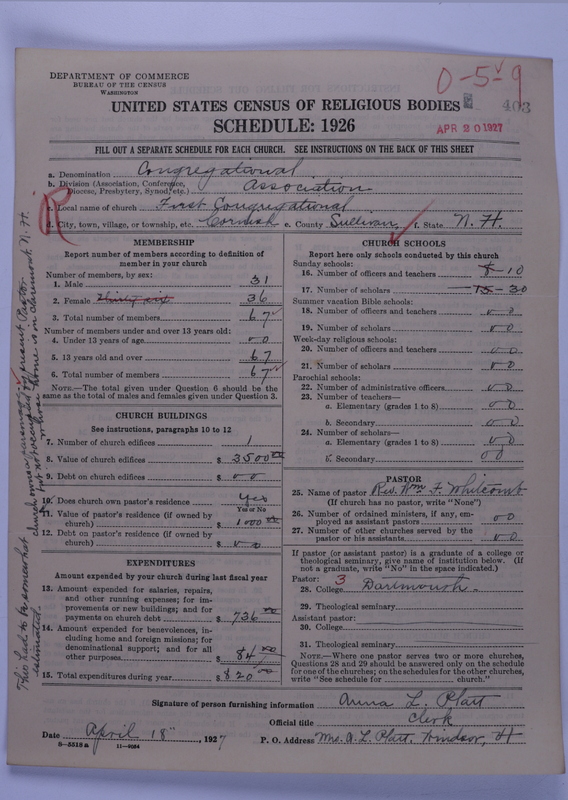 DEPARTMENT OF COMMERCE
BUREAU OF THE CENSUS
WASHINGTON
0-5-9
403
UNITED STATES CENSUS OF RELIGIOUS BODIES
SCHEDULE: 1926
APR 20 1927
FILL OUT A SEPARATE SCHEDULE FOR EACH CHURCH. SEE INSTRUCTIONS ON THE BACK OF THIS SHEET
a. Denomination Congregational
b. Division (Association, Conference, Diocese, Presbytery, Synod, etc.) Association
c. Local name of church First Congregational
d. City, town, village, or township, etc. Cornish e. County Sullivan f. State N. H.
R
MEMBERSHIP
Report number of members according to definition of member in your church
Number of members, by sex:
1. Male 31
2. Female thirty six 36
3. Total number of members 67
Number of members under and over 13 years old:
4. Under 13 years of age 0
5. 13 years old and over 67
6. Total number of members 67
NOTE.—The total given under Question 6 should be the same as the total of males and females given under Question 3.
CHURCH BUILDINGS
See instructions, paragraphs 10 to 12
7. Number of church edifices 1
8. Value of church edifices $ 3500 00
9. Debt on church edifices $ 0 0
10. Does church own pastor's residence Yes
Yes or No
11. Value of pastor's residence (if owned by church) $ 1000 00
12. Debt on pastor's residence (if owned by church) $ 0
EXPENDITURES
Amount expended by your church during last fiscal year
13. Amount expended for salaries, repairs, and other running expenses; for improvements or new buildings; and for payments on church debt $ 736 00
14. Amount expended for benevolences, including home and foreign missions; for denominational support; and for all other purposes $ 84 00
15. Total expenditures during year $ 820 00
CHURCH SCHOOLS
Report here only schools conducted by this church
Sunday schools:
16. Number of officers and teachers 8-10
17. Number of scholars 15-30
Summer vacation Bible schools:
18. Number of officers and teachers 0
19. Number of scholars 0
Week-day religious schools:
20. Number of officers and teachers 0
21. Number of scholars 0
Parochial schools:
22. Number of administrative officers 0
23. Number of teachers—
a. Elementary (grades 1 to 8) 0
b. Secondary 0
24. Number of scholars—
a. Elementary (grades 1 to 8) 0
b. Secondary 0 0
PASTOR
25. Name of pastor Rev. Wm F. Whitcomb
(If church has no pastor, write "None")
26. Number of ordained ministers, if any, employed as assistant pastors 0 0
27. Number of other churches served by the pastor or his assistants 0
If pastor (or assistant pastor) is a graduate of a college or theological seminary, give name of institution below. (If not a graduate, write "No" in the space indicated.)
Pastor: 3
28. College Dartmouth
29. Theological seminary
Assistant pastor:
30. College
31. Theological seminary
NOTE.—Where one pastor serves two or more churches, Questions 28 and 29 should be answered only on the schedule for one of the churches; on the schedules for the other churches, write "See schedule for church."
Signature of person furnishing information Anna L. Platt
Official title Clerk
Date April 18", 1927 P. O. Address Mrs. A. L. Platt. Windsor, Vt
8-5518a 11-9054
This had to be somewhat estimated.
church owns a parsonage but not occupied by present Pastor whose home is in Claremont N. H.